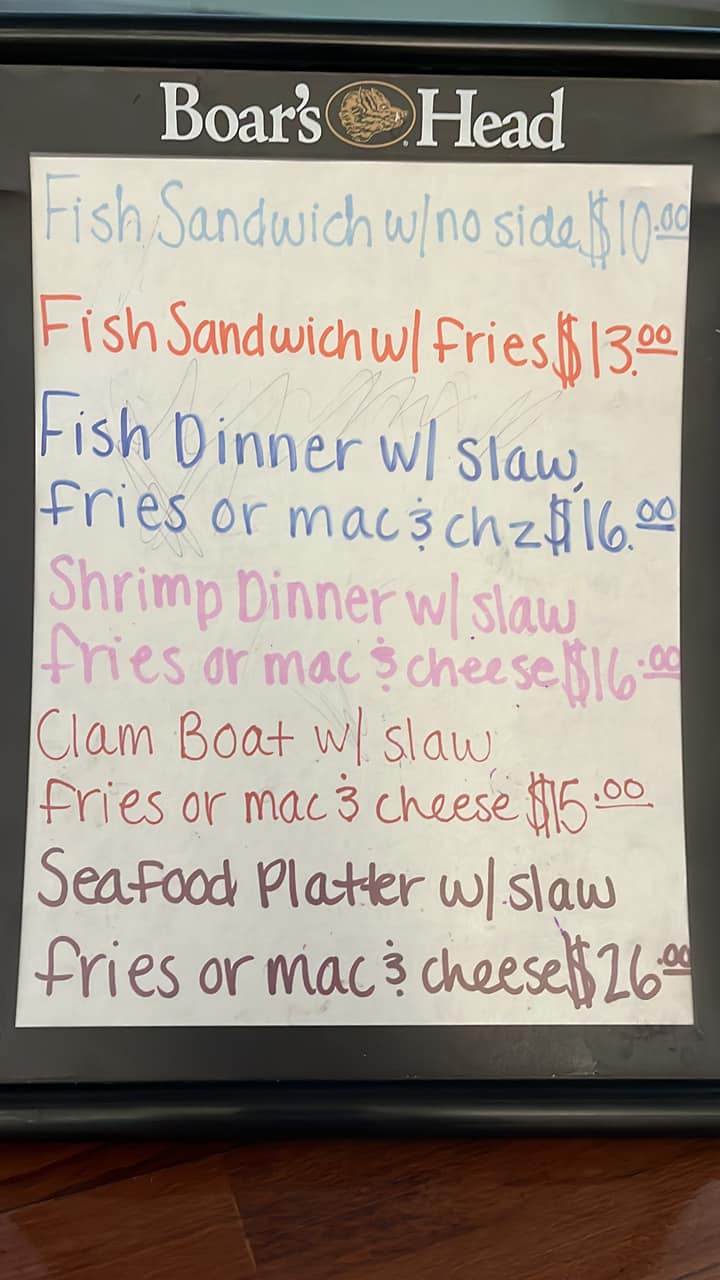 Boar's Head
Fish Sandwich w/no side $10.00
Fish Sandwich w/ Fries $13.00
Fish Dinner w/ slaw,
fries or mac & chz $16.00
Shrimp Dinner w/ slaw
fries or mac & cheese $16.00
Clam Boat w/ slaw
fries or mac & cheese $15.00
Seafood Platter w/ slaw
fries or mac & cheese $26.00